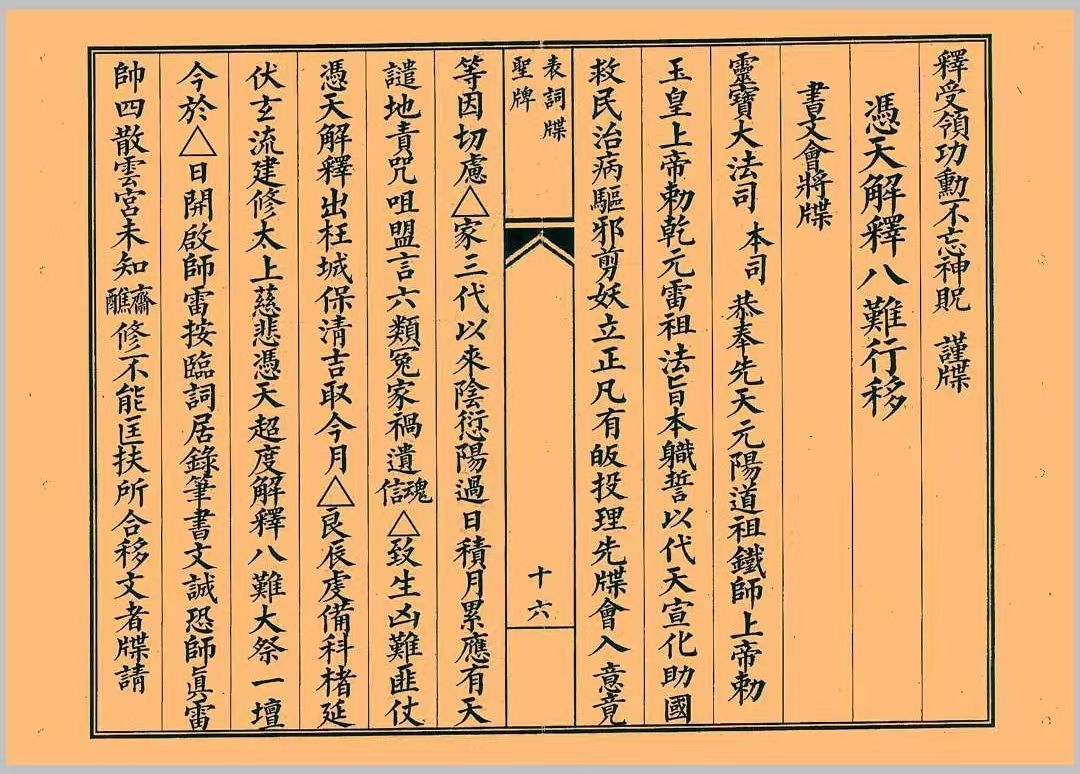 釋受領功勳不忘神貺　謹牒
憑天解釋八難行移
書文會將牒
靈寶大法司　本司　恭奉先天元陽道祖鐵師上帝勅
玉皇上帝勅乾元雷祖法旨本職誓以代天宣化助國
救民治病驅邪剪妖立正凡有皈投理先牒會入意竟
表詞牒
聖牌
十六
等因切慮△家三代以來陰愆陽過日積月累應有天
譴地責咒咀盟言六類冤家禍遺魂信△致生凶難匪仗
憑天解釋出枉城保清吉取今月△良辰虔備科楮延
伏玄流建修太上慈悲憑天超度解釋八難大祭一壇
今於△日開啟師雷按臨詞居錄筆書文誠恐師眞雷
帥四散雲宮未知齋醮修不能匡扶所合移文者牒請